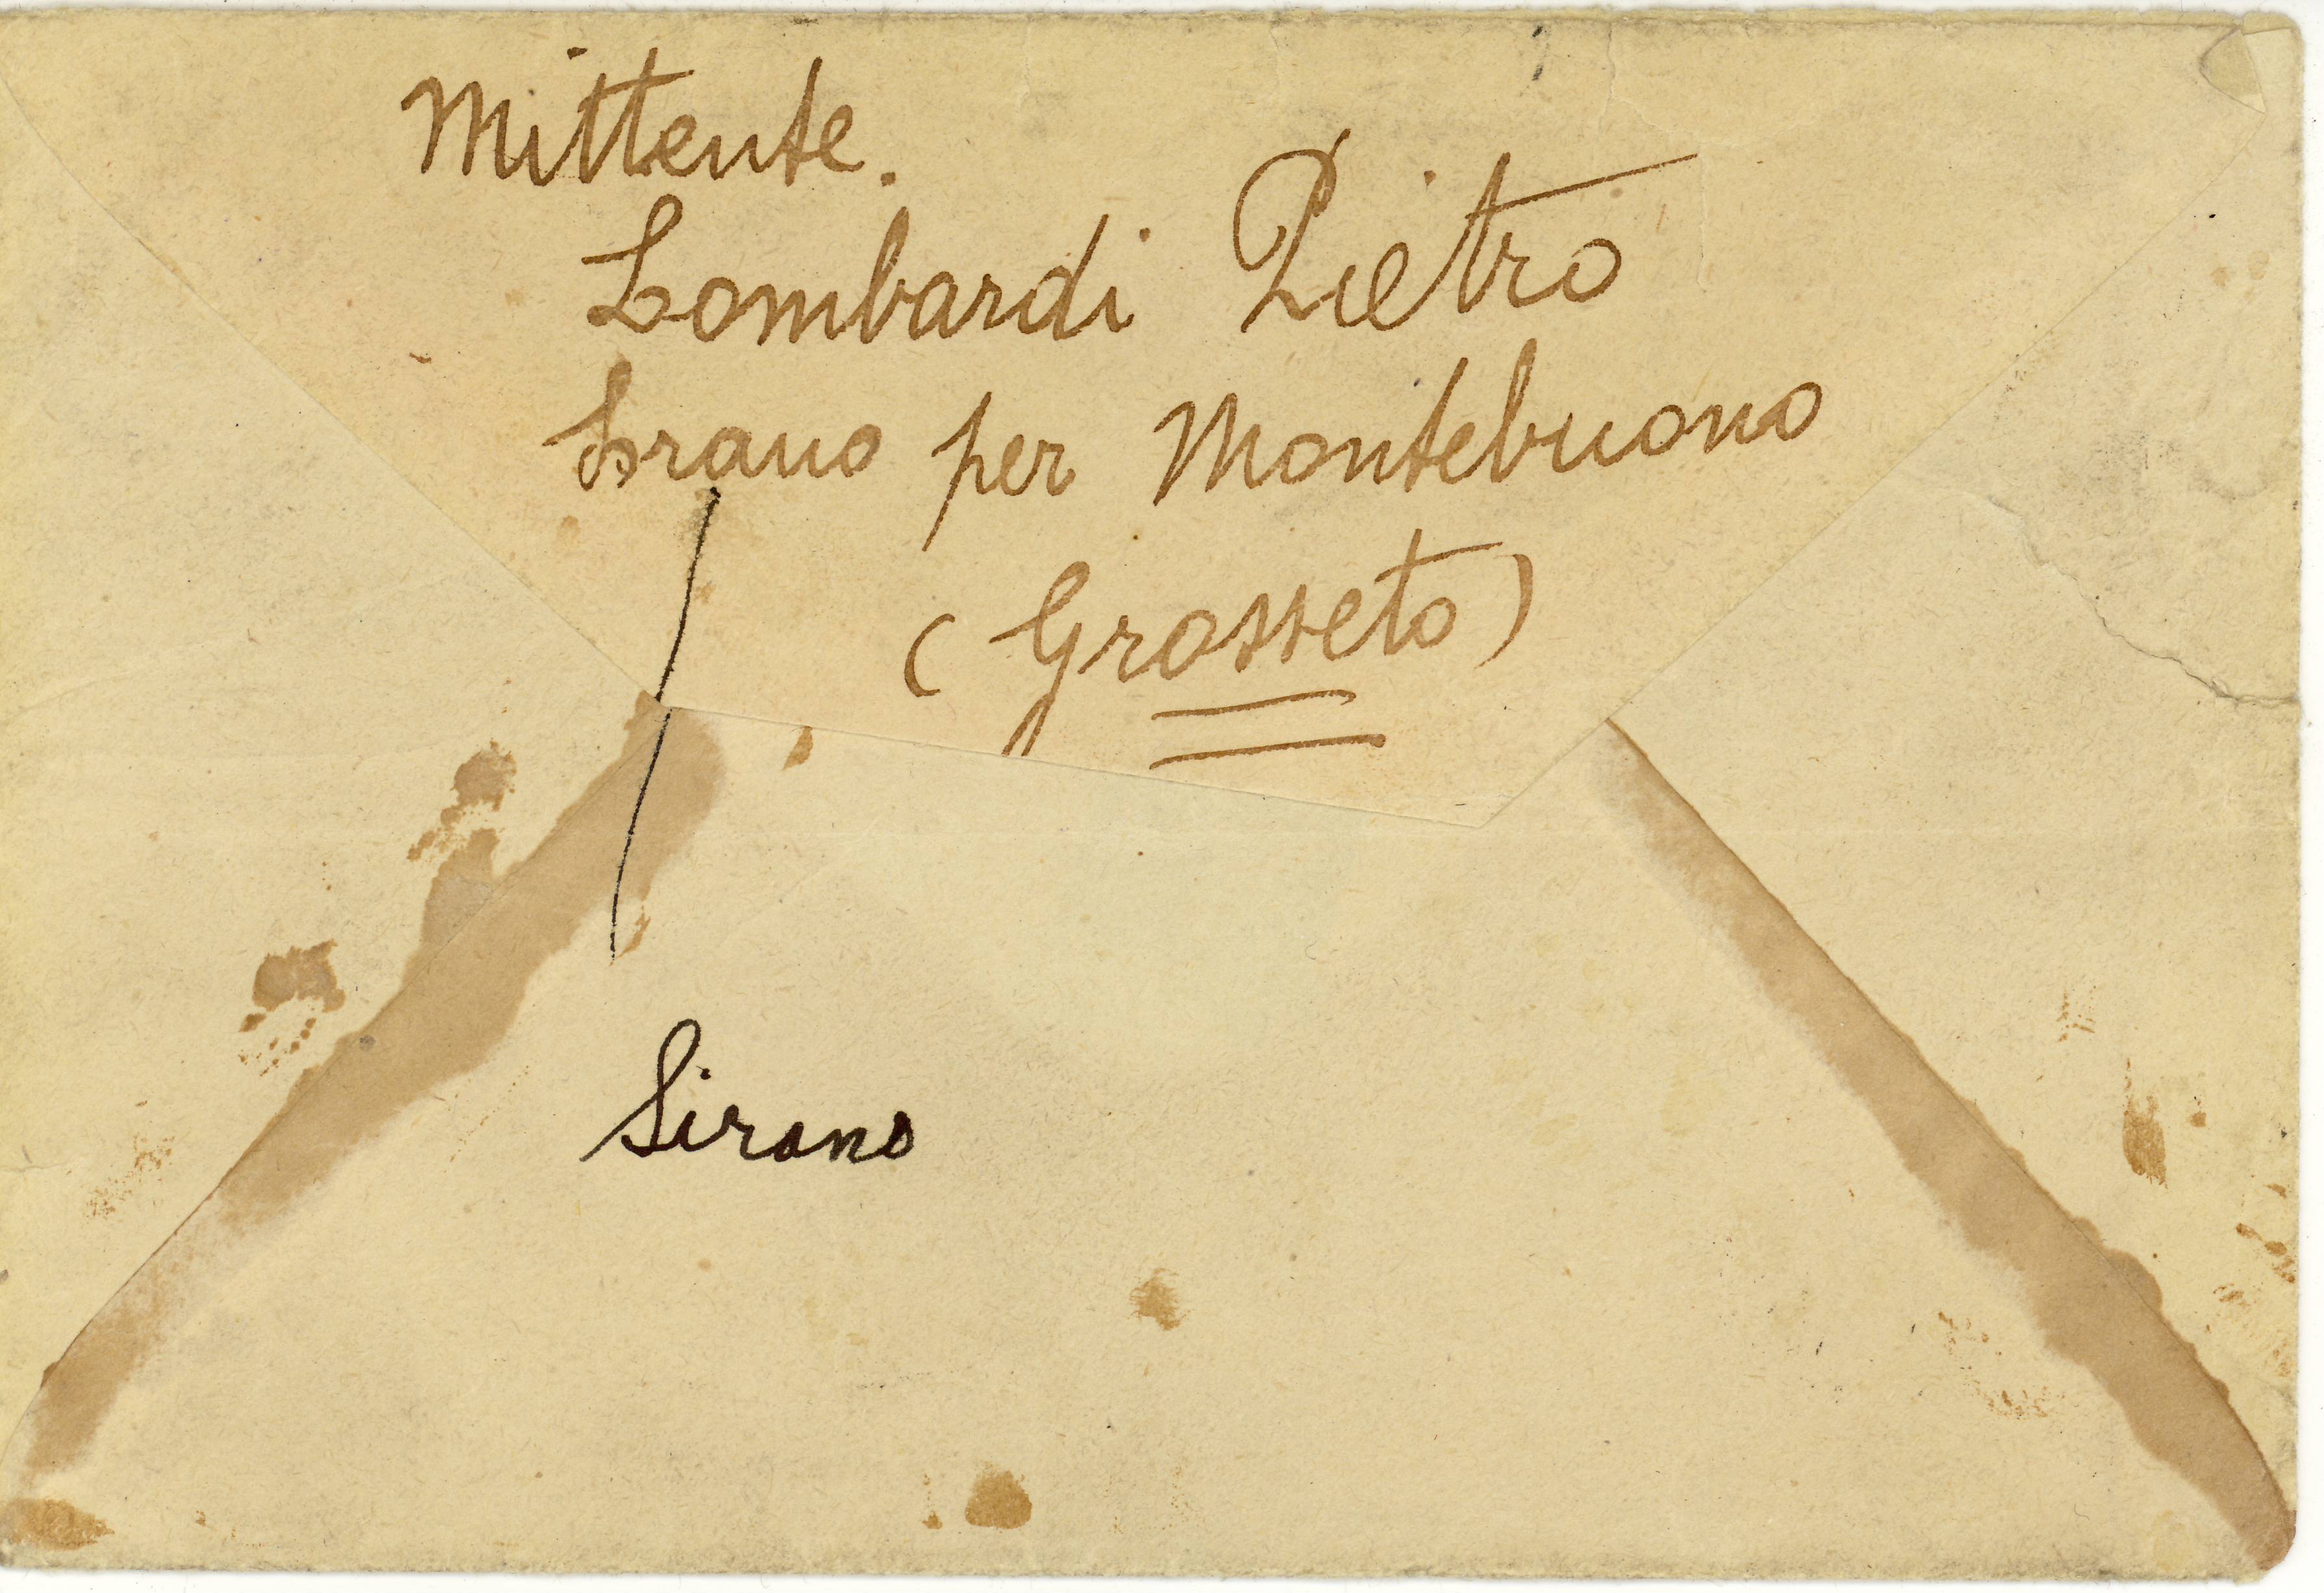 Mittente.
Lombardi Pietro
Sorano per Montebuono
(Grosseto)
Sirano